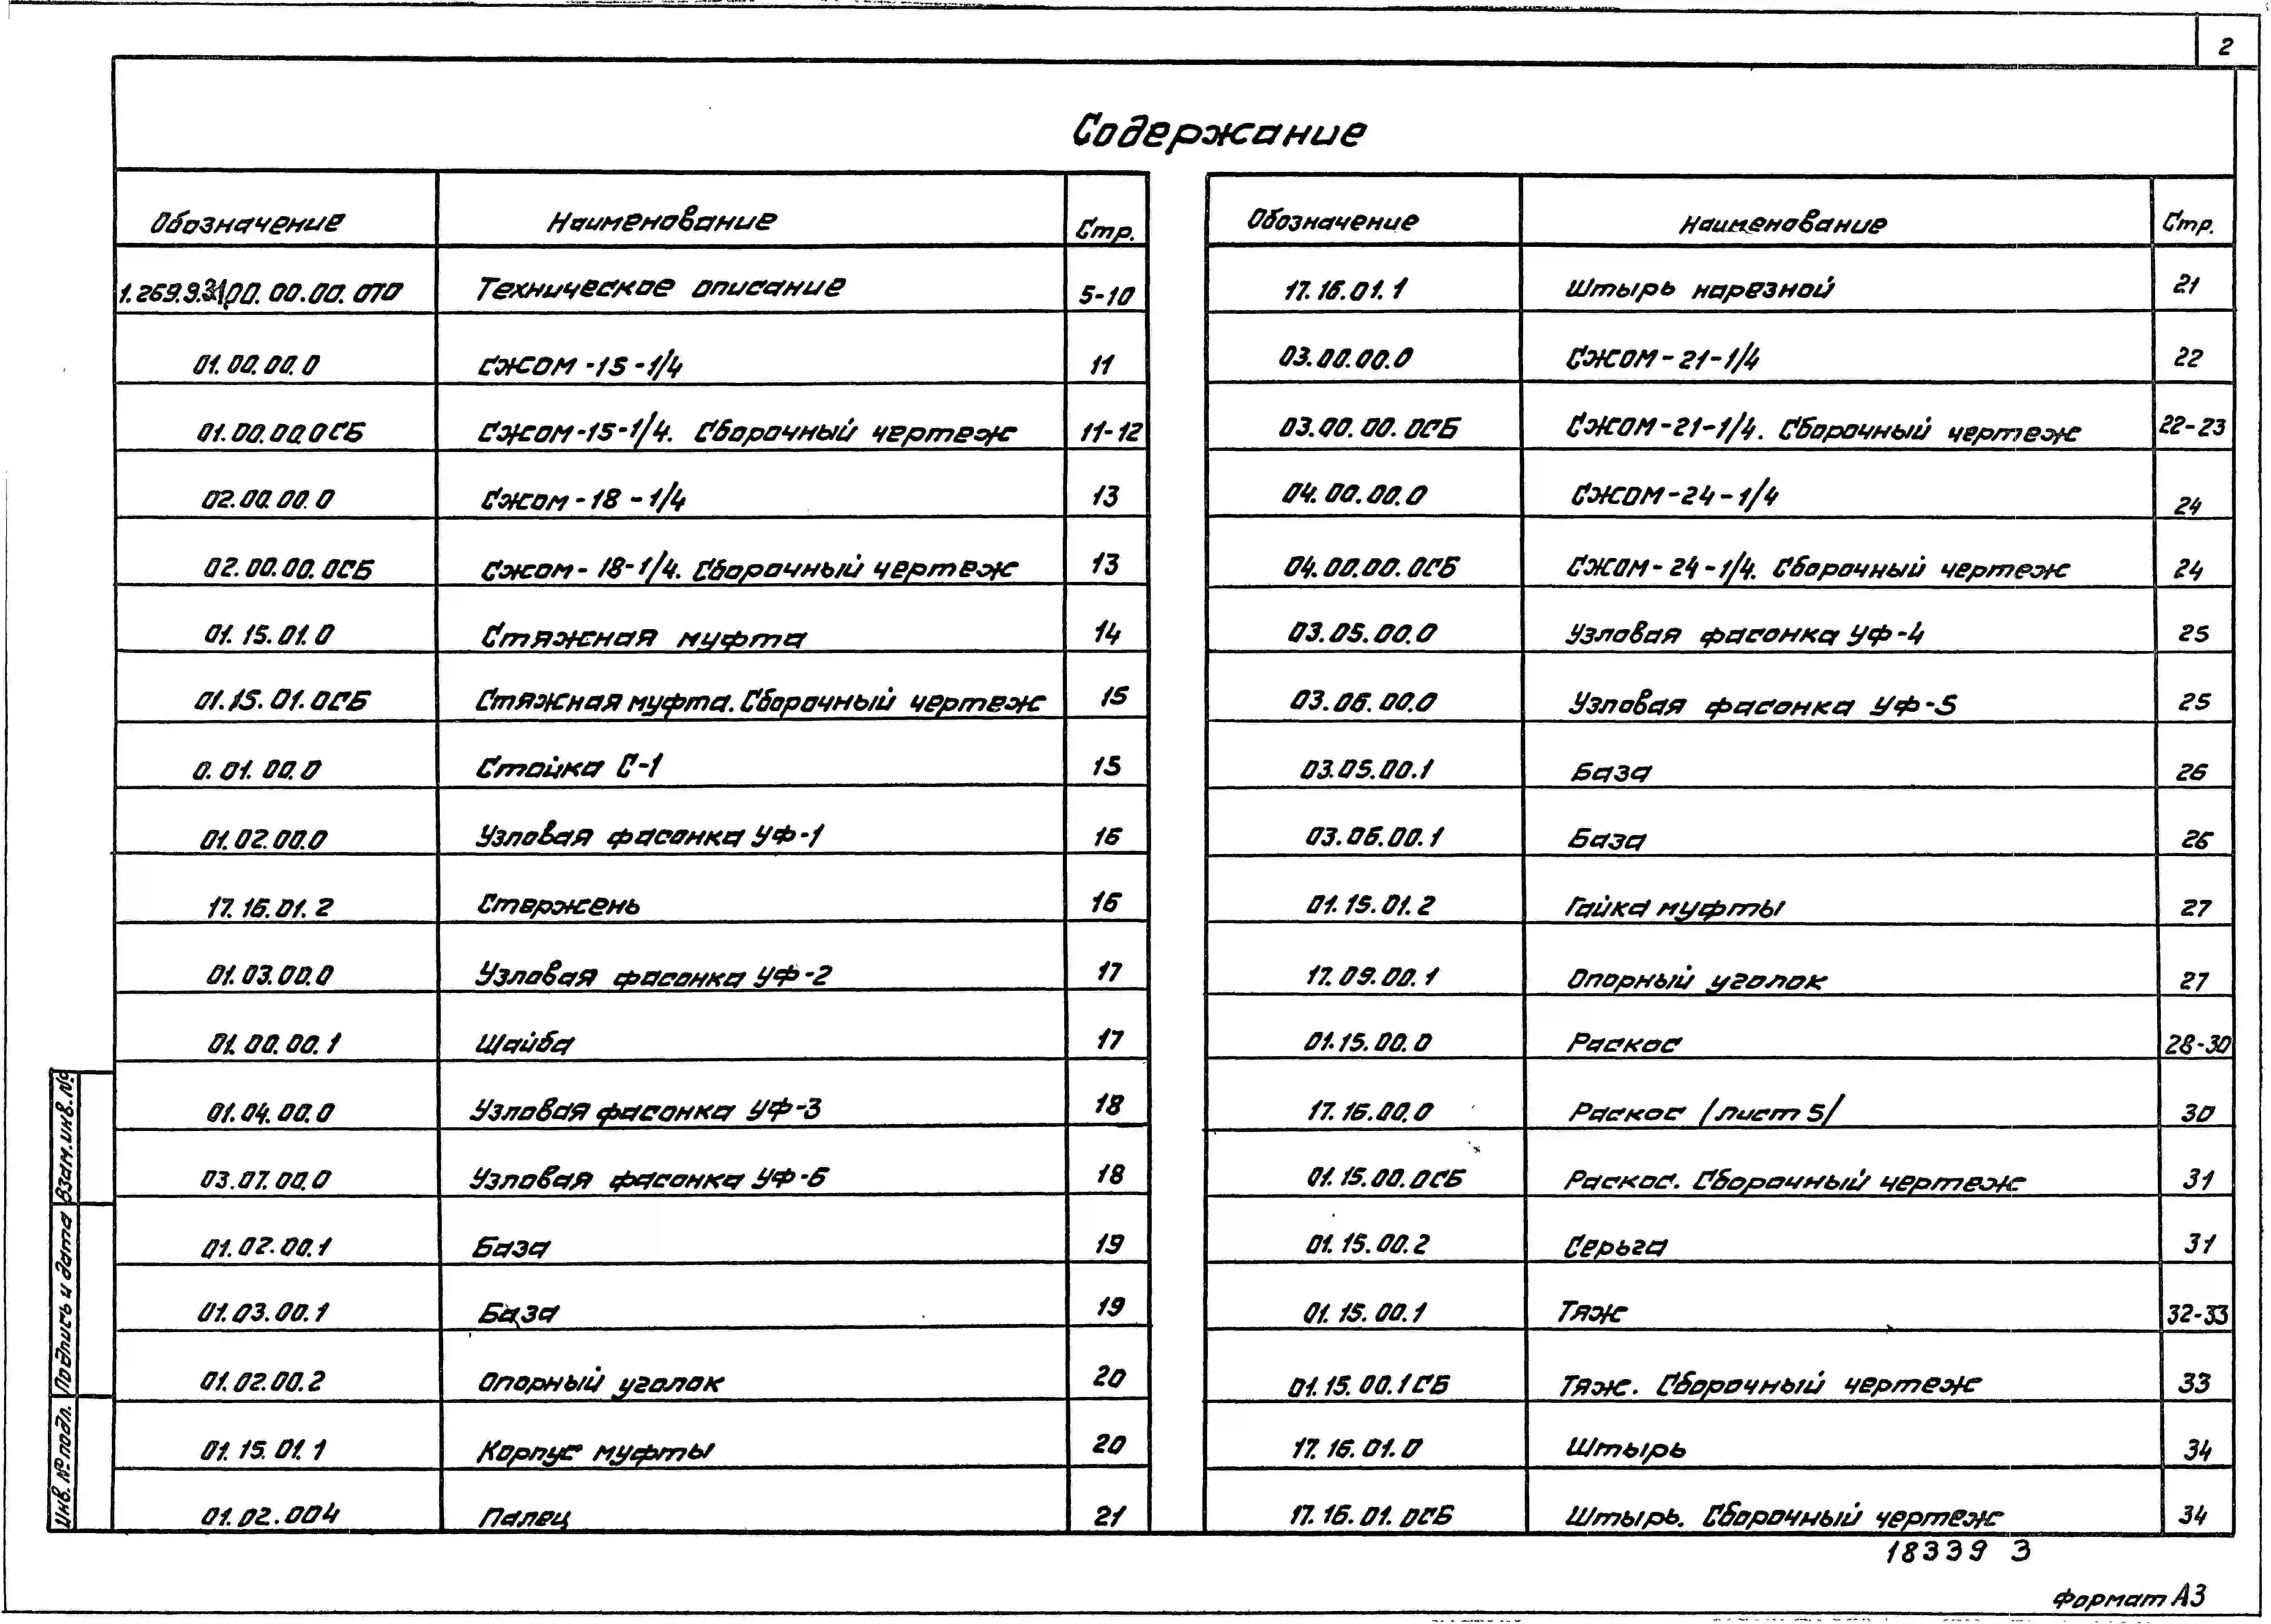 2
Содержание
Обозначение Наименование Стр.
Техническое описание 5-10
01.00.00.0 Сжом-15-1/4 11
01.00.00.0СБ Сжом-15-1/4. Сборочный чертеж 11-12
02.00.00.0 Сжом-18-1/4 13
02.00.00.0СБ Сжом-18-1/4. Сборочный чертеж 13
01.15.01.0 Стяжная муфта 14
01.15.01.0СБ Стяжная муфта. Сборочный чертеж 15
0.01.00.0 Стойка С-1 15
01.02.00.0 Узловая фасонка УФ-1 16
17.16.01.2 Стержень 16
01.03.00.0 Узловая фасонка УФ-2 17
01.00.00.1 Шайба 17
01.04.00.0 Узловая фасонка УФ-3 18
03.07.00.0 Узловая фасонка УФ-6 18
01.02.00.1 База 19
01.03.00.1 База 19
01.02.00.2 Опорный уголок 20
01.15.01.1 Корпус муфты 20
01.02.004 Палец 21
Обозначение Наименование Стр.
17.16.01.1 Штырь нарезной 21
03.00.00.0 Сжом-21-1/4 22
03.00.00.0СБ Сжом-21-1/4. Сборочный чертеж 22-23
04.00.00.0 Сжом-24-1/4 24
04.00.00.0СБ Сжом-24-1/4. Сборочный чертеж 24
03.05.00.0 Узловая фасонка УФ-4 25
03.06.00.0 Узловая фасонка УФ-5 25
03.05.00.1 База 26
03.06.00.1 База 26
01.15.01.2 Гайка муфты 27
17.09.00.1 Опорный уголок 27
01.15.00.0 Раскос 28-30
17.16.00.0 Раскос /лист 5/ 30
01.15.00.0СБ Раскос. Сборочный чертеж 31
01.15.00.2 Серьга 31
01.15.00.1 Тяж 32-33
01.15.00.1СБ Тяж. Сборочный чертеж 33
17.16.01.0 Штырь 34
17.16.01.0СБ Штырь. Сборочный чертеж 34
Взам. инв. №
Подпись и дата
Инв. № подл.
18339 3
Формат А3